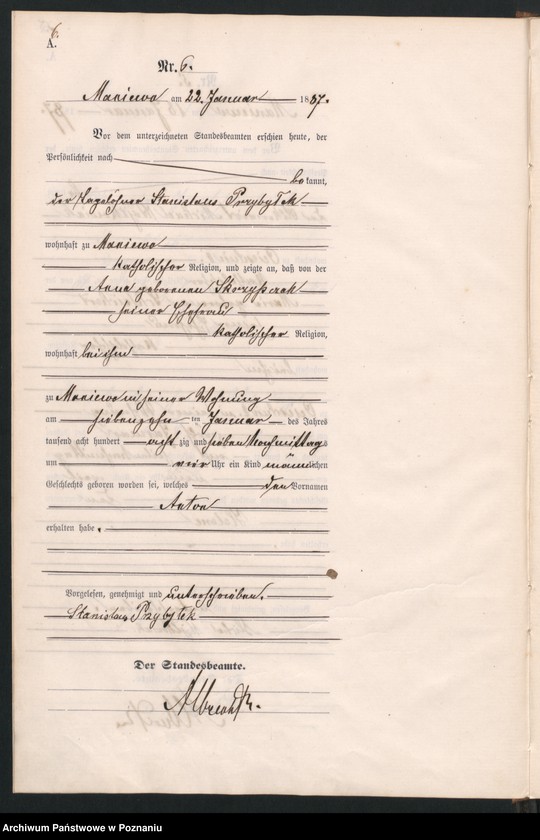 6.
A.
Nr. 6.
Maniewo am 22. Januar 1887.
Vor dem unterzeichneten Standesbeamten erschien heute, der
Persönlichkeit nach
bekannt,
der Tagelöhner Stanislaus Przybylek
wohnhaft zu Maniewo
katholischer Religion, und zeigte an, daß von der
Anna geborenen Skrzypczak
seiner Ehefrau
katholischer Religion,
wohnhaft bei ihm
zu Maniewo in seiner Wohnung
am siebenzehn ten Januar des Jahres
tausend acht hundert acht zig und sieben Nachmittags
um vier Uhr ein Kind männlichen
Geschlechts geboren worden sei, welches den Vornamen
Anton
erhalten habe.
Vorgelesen, genehmigt und unterschrieben.
Stanislaus Przybylek
Der Standesbeamte.
Albrecht.
Archiwum Państwowe w Poznaniu